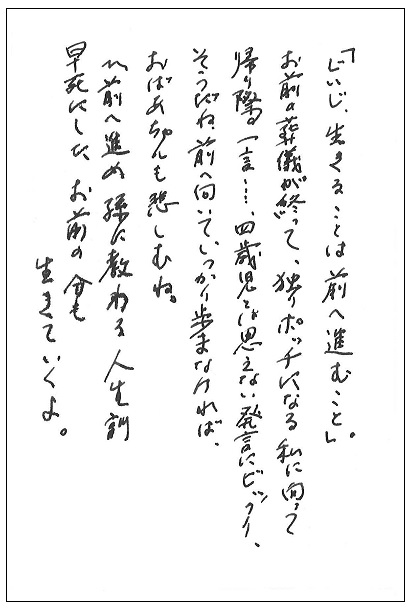 「じいじ、生きることは前へ進むこと」。
お前の葬儀が終って、独りポッチになる私に向って
帰り際の一言…、四歳児とは思えない発言にビックリ、
そうだね、前へ向いてしっかり歩まなければ、
おばあちゃんも悲しむね。
〃前へ進め 孫に教わる 人生訓
早死にした、お前の分も
生きていくよ。